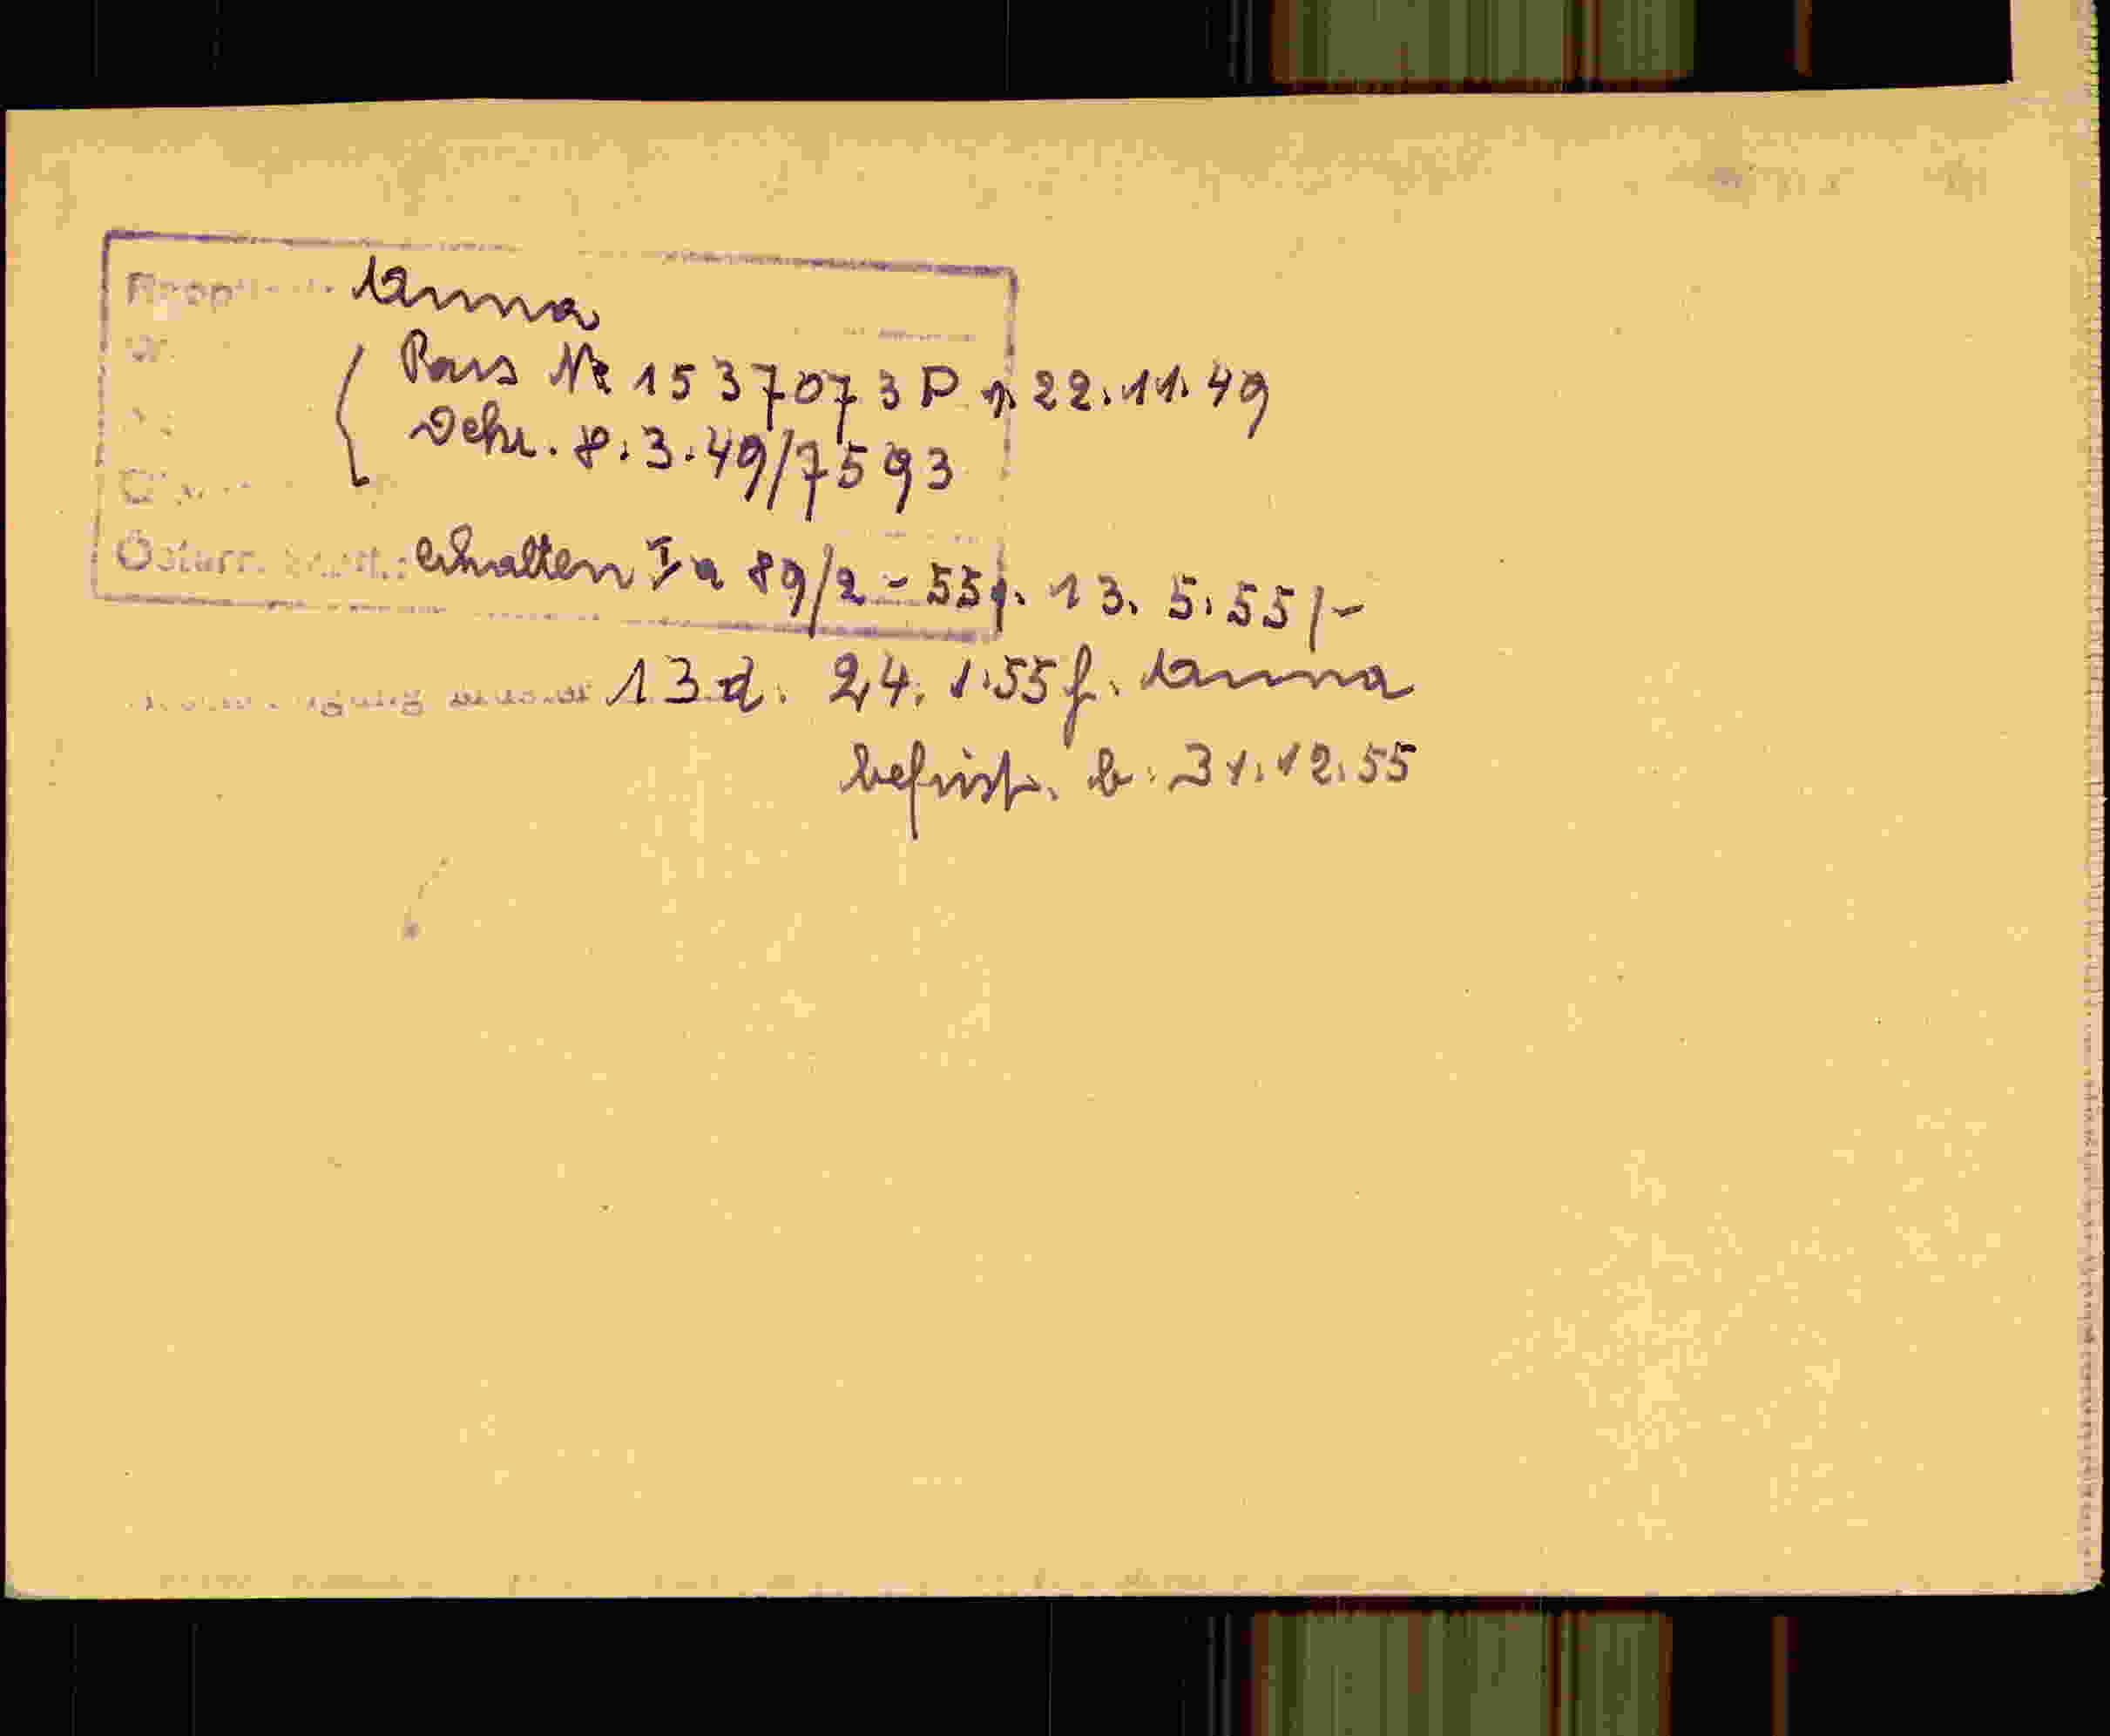 Anna
Pass Nr 1537073 P v. 22.11.49
Dekr. 8.3.49/7593
Österr. erhalten Ia 89/2-55 v. 13. 5. 55/-
13 a. 24. 1. 55 f. Anna
befrist. b. 31.12.55